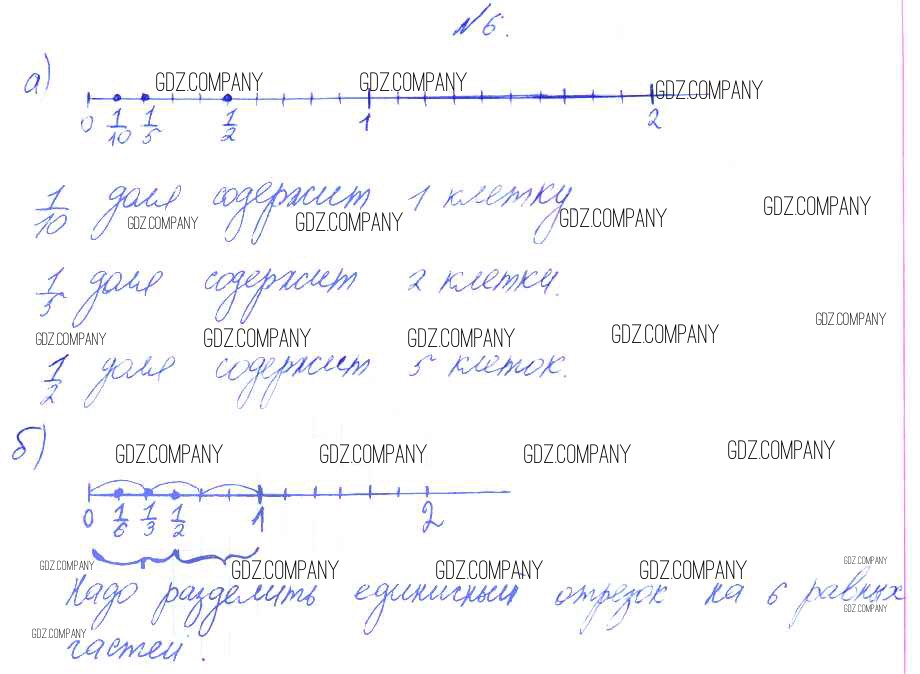 №6.
а)
GDZ.COMPANY GDZ.COMPANY GDZ.COMPANY
0 1/10 1/5 1/2 1 2
1/10 доля содержит 1 клетку
GDZ.COMPANY GDZ.COMPANY GDZ.COMPANY GDZ.COMPANY
1/5 доля содержит 2 клетки.
GDZ.COMPANY GDZ.COMPANY GDZ.COMPANY GDZ.COMPANY GDZ.COMPANY
1/2 доля содержит 5 клеток.
б)
GDZ.COMPANY GDZ.COMPANY GDZ.COMPANY GDZ.COMPANY
0 1/6 1/3 1/2 1 2
GDZ.COMPANY GDZ.COMPANY GDZ.COMPANY GDZ.COMPANY GDZ.COMPANY
Надо разделить единичный отрезок на 6 равных
GDZ.COMPANY GDZ.COMPANY
частей.